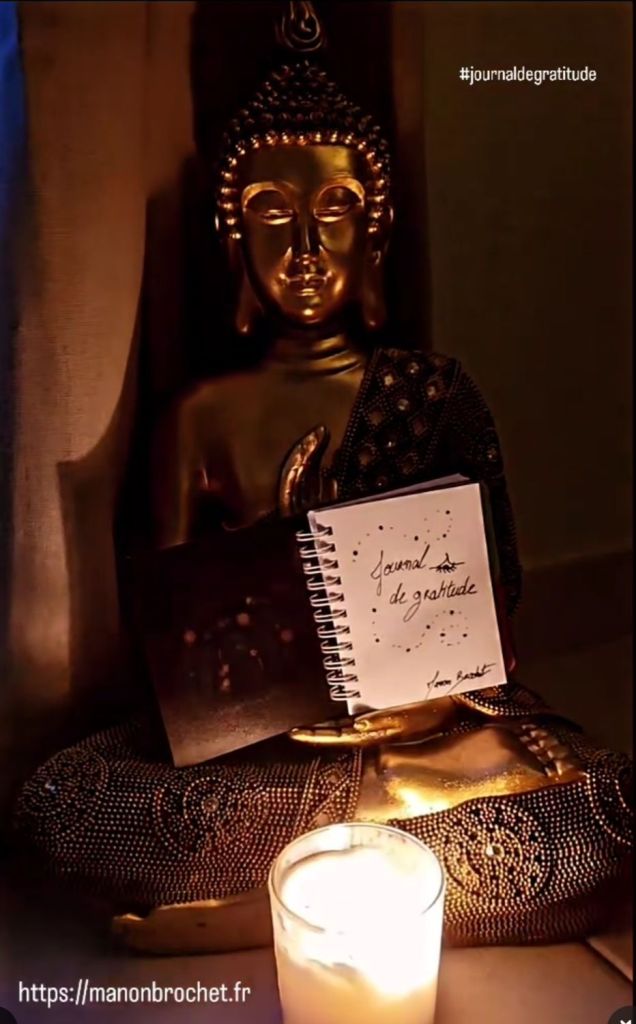 #journaldegratitude
Journal
de gratitude
https://manonbrochet.fr